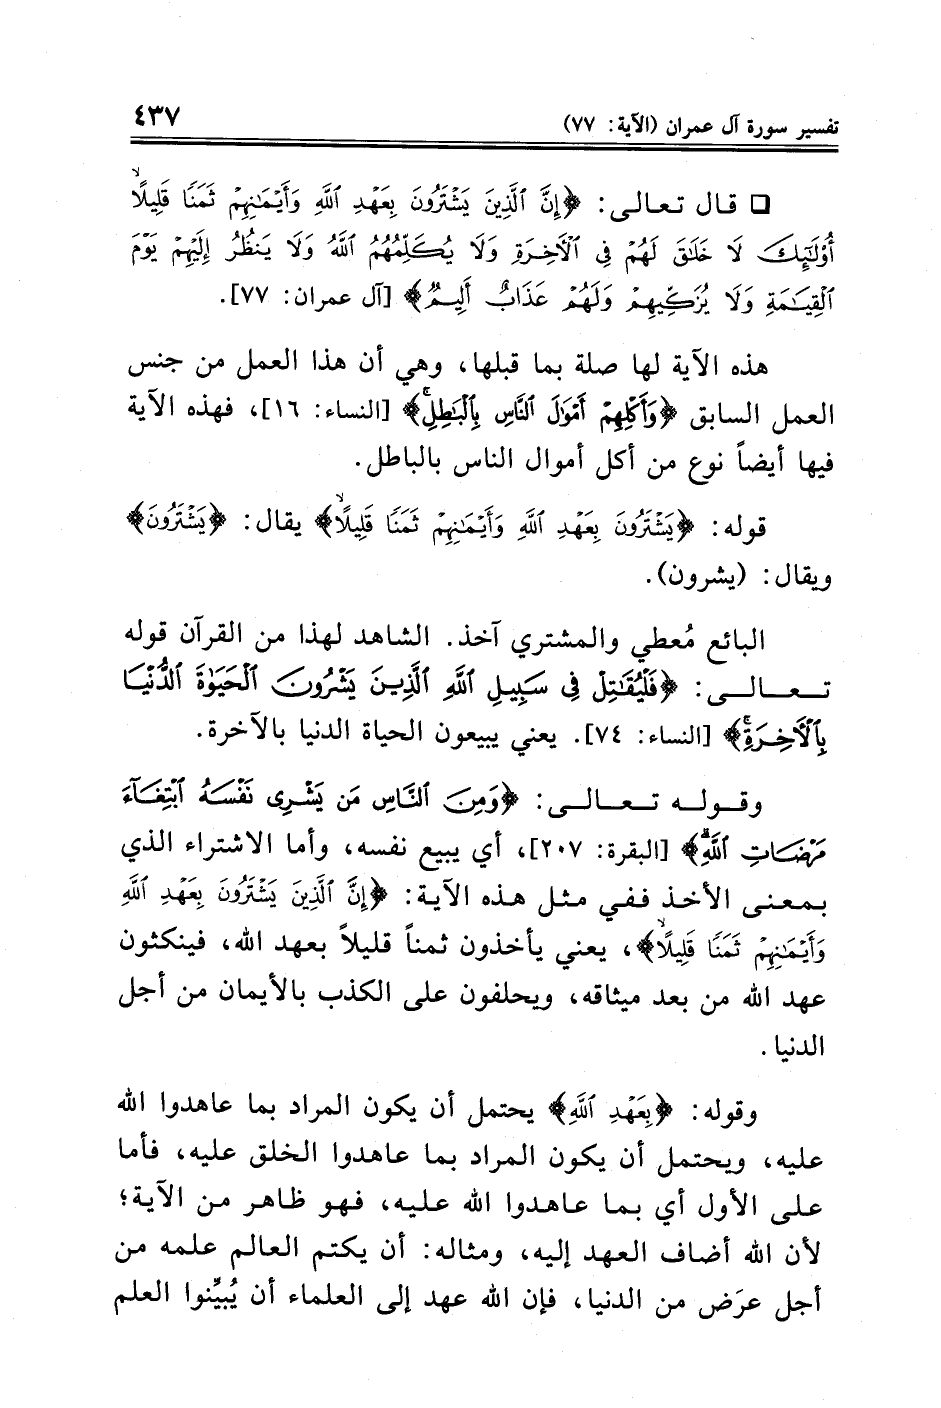 تفسير سورة آل عمران (الآية: ٧٧)
٤٣٧
❑ قال تعالى: ﴿إِنَّ الَّذِينَ يَشْتَرُونَ بِعَهْدِ اللَّهِ وَأَيْمَٰنِهِمْ ثَمَنًا قَلِيلًاۙ
أُوْلَٰٓئِكَ لَا خَلَٰقَ لَهُمْ فِي الْأَخِرَةِ وَلَا يُكَلِّمُهُمُ اللَّهُ وَلَا يَنظُرُ إِلَيْهِمْ يَوْمَ
الْقِيَٰمَةِ وَلَا يُزَكِّيهِمْ وَلَهُمْ عَذَابٌ أَلِيمٌ﴾ [آل عمران: ٧٧].
هذه الآية لها صلة بما قبلها، وهي أن هذا العمل من جنس
العمل السابق ﴿وَأَكْلِهِمْ أَمْوَٰلَ النَّاسِ بِالْبَٰطِلِۚ﴾ [النساء: ١٦]، فهذه الآية
فيها أيضاً نوع من أكل أموال الناس بالباطل.
قوله: ﴿يَشْتَرُونَ بِعَهْدِ اللَّهِ وَأَيْمَٰنِهِمْ ثَمَنًا قَلِيلًاۙ﴾ يقال: ﴿يَشْتَرُونَ﴾
ويقال: (يشرون).
البائع مُعطي والمشتري آخذ. الشاهد لهذا من القرآن قوله
تعالى: ﴿فَلْيُقَٰتِلْ فِي سَبِيلِ اللَّهِ الَّذِينَ يَشْرُونَ الْحَيَوٰةَ الدُّنْيَا
بِالْأَخِرَةِۚ﴾ [النساء: ٧٤]. يعني يبيعون الحياة الدنيا بالآخرة.
وقوله تعالى: ﴿وَمِنَ النَّاسِ مَن يَشْرِى نَفْسَهُ ابْتِغَآءَ
مَرْضَاتِ اللَّهِۗ﴾ [البقرة: ٢٠٧]، أي يبيع نفسه، وأما الاشتراء الذي
بمعنى الأخذ ففي مثل هذه الآية: ﴿إِنَّ الَّذِينَ يَشْتَرُونَ بِعَهْدِ اللَّهِ
وَأَيْمَٰنِهِمْ ثَمَنًا قَلِيلًاۙ﴾، يعني يأخذون ثمناً قليلاً بعهد الله، فينكثون
عهد الله من بعد ميثاقه، ويحلفون على الكذب بالأيمان من أجل
الدنيا.
وقوله: ﴿بِعَهْدِ اللَّهِ﴾ يحتمل أن يكون المراد بما عاهدوا الله
عليه، ويحتمل أن يكون المراد بما عاهدوا الخلق عليه، فأما
على الأول أي بما عاهدوا الله عليه، فهو ظاهر من الآية؛
لأن الله أضاف العهد إليه، ومثاله: أن يكتم العالم علمه من
أجل عرَض من الدنيا، فإن الله عهد إلى العلماء أن يُبيِّنوا العلم